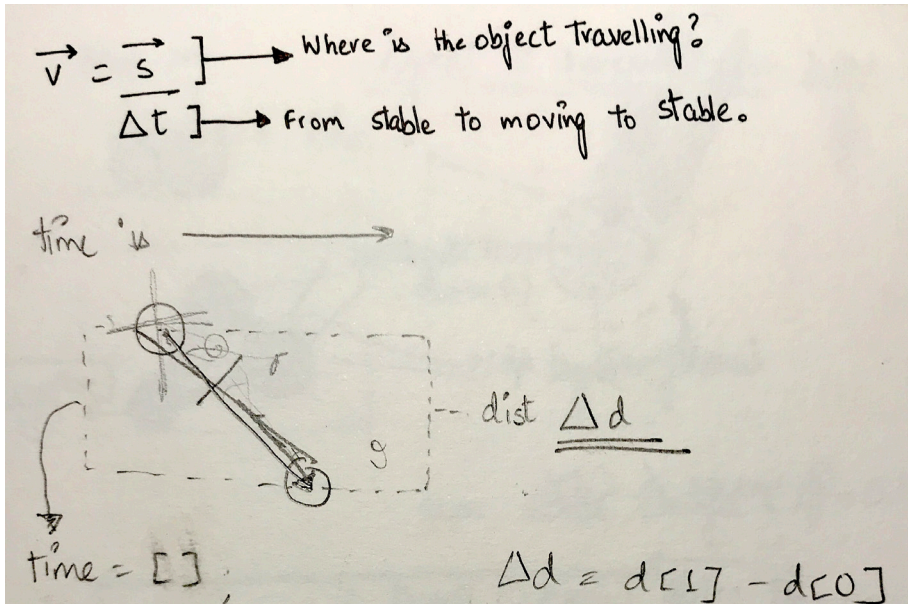 v = s ] → Where is the object Travelling?
Δt ] → From stable to moving to stable.
time is →
r
dist Δd
time = [ ]
Δd = d[1] - d[0]